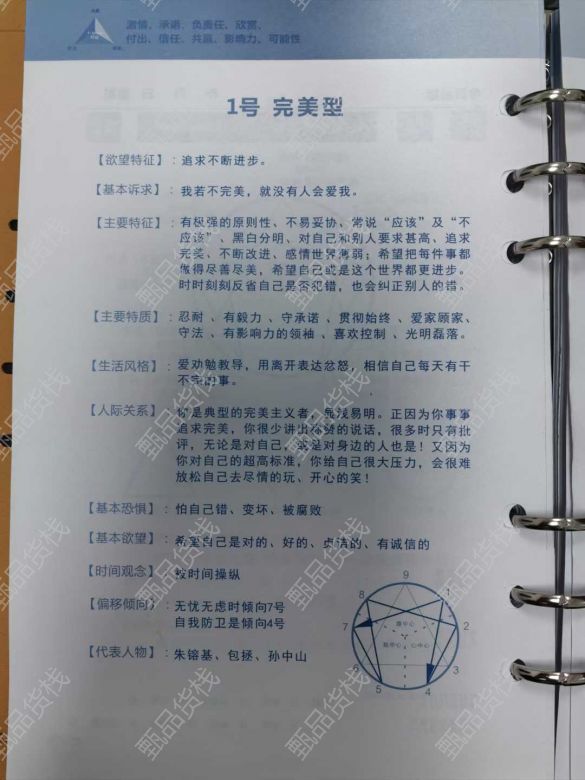 激情、承诺、负责任、欣赏、
付出、信任、共赢、影响力、可能性
1号 完美型
【欲望特征】：追求不断进步。
【基本诉求】：我若不完美，就没有人会爱我。
【主要特征】：有极强的原则性、不易妥协、常说“应该”及“不
应该”、黑白分明、对自己和别人要求甚高、追求
完美、不断改进、感情世界薄弱；希望把每件事都
做得尽善尽美，希望自己或是这个世界都更进步。
时时刻刻反省自己是否犯错，也会纠正别人的错。
【主要特质】：忍耐、有毅力、守承诺、贯彻始终、爱家顾家、
守法、有影响力的领袖、喜欢控制、光明磊落。
【生活风格】：爱劝勉教导，用离开表达忿怒，相信自己每天有干
不完的事。
【人际关系】：你是典型的完美主义者，显浅易明。正因为你事事
追求完美，你很少讲出称赞的说话，很多时只有批
评，无论是对自己，或是对身边的人也是！又因为
你对自己的超高标准，你给自己很大压力，会很难
放松自己去尽情的玩、开心的笑！
【基本恐惧】：怕自己错、变坏、被腐败
【基本欲望】：希望自己是对的、好的、贞洁的、有诚信的
【时间观念】：按时间操纵
【偏移倾向】：无忧无虑时倾向7号
自我防卫是倾向4号
【代表人物】：朱镕基、包拯、孙中山
9
8
1
腹中心
7
2
脑中心
心中心
6
3
5
4
甄品货栈